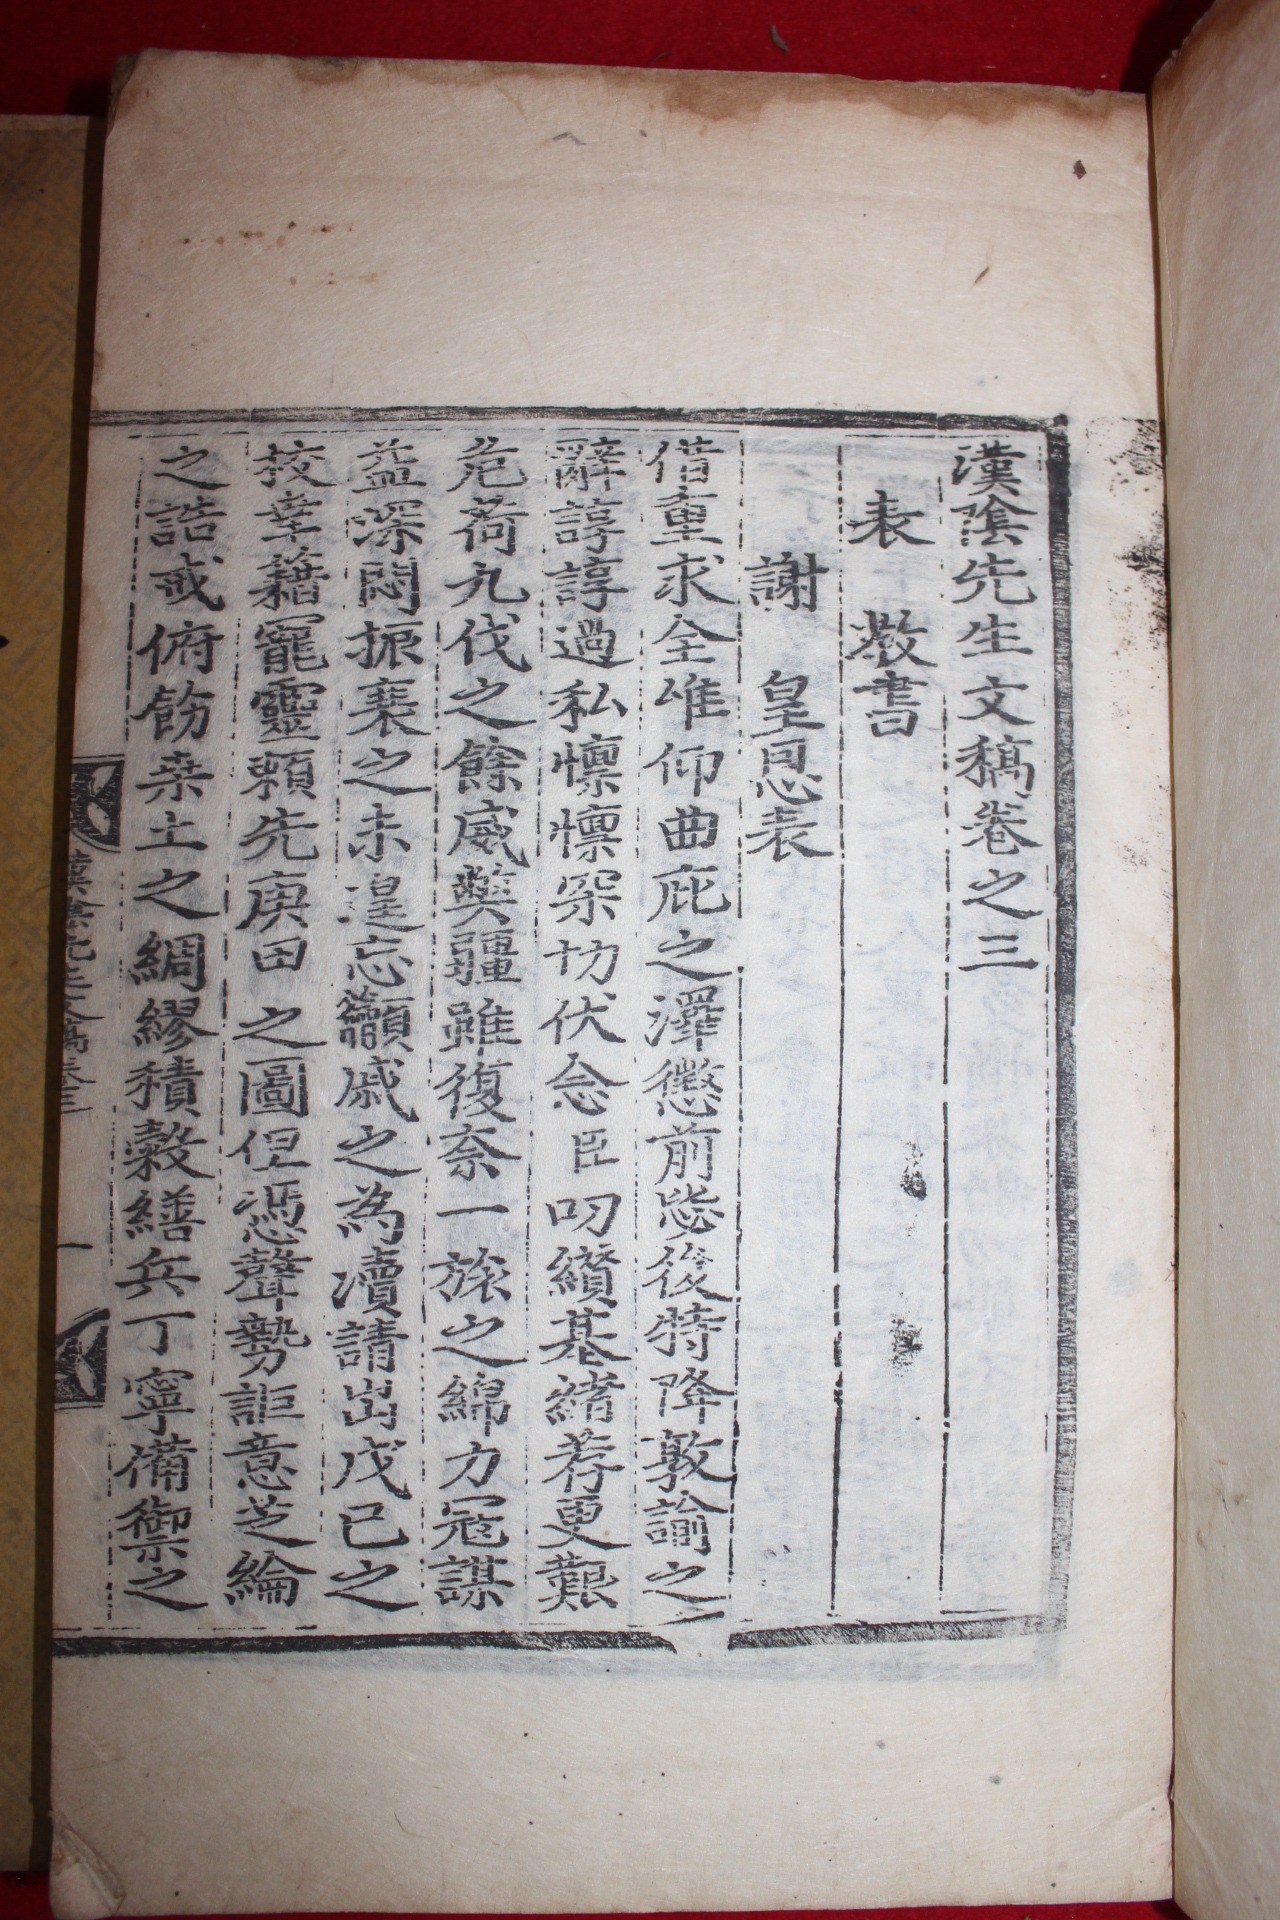 漢陰先生文稿卷之三
表 敎書
謝 皇恩表
借重求全唯仰曲庇之澤懲前毖後特降敦諭之
辭諄諄過私懍懍罙切伏念臣叨纘基緖荐更艱
危荷九伐之餘威奠疆雖復奈一旅之綿力寇謀
益深悶振裘之未遑忘籲戚之爲瀆請出戊己之
校幸藉寵靈賴先庚田之圖但憑聲勢詎意芝綸
之誥戒俯飭桒土之綢繆積穀繕兵丁寧備禦之
漢陰先生文稿卷三 一